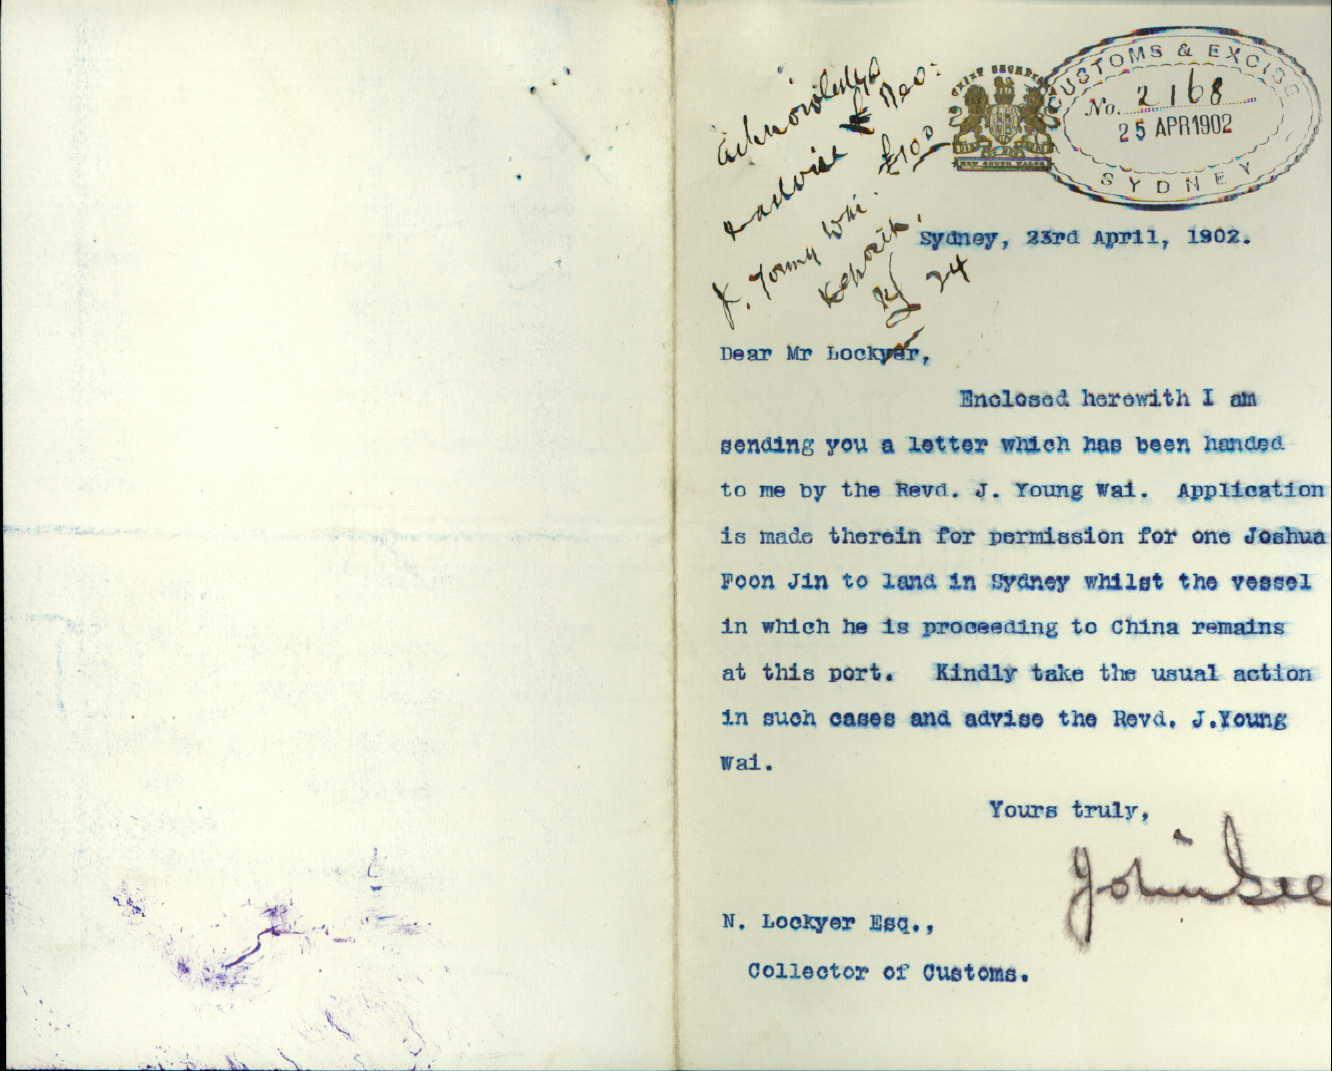 CHIEF SECRETARY
NEW SOUTH WALES
CUSTOMS & EXCISE
No. 2168
25 APR 1902
SYDNEY
acknowledge
& advise
£100
J. Young Wai
24
Sydney, 23rd April, 1902.
Dear Mr Lockyer,
Enclosed herewith I am
sending you a letter which has been handed
to me by the Revd. J. Young Wai. Application
is made therein for permission for one Joshua
Foon Jin to land in Sydney whilst the vessel
in which he is proceeding to China remains
at this port. Kindly take the usual action
in such cases and advise the Revd. J.Young
Wai.
Yours truly,
John See
N. Lockyer Esq.,
Collector of Customs.